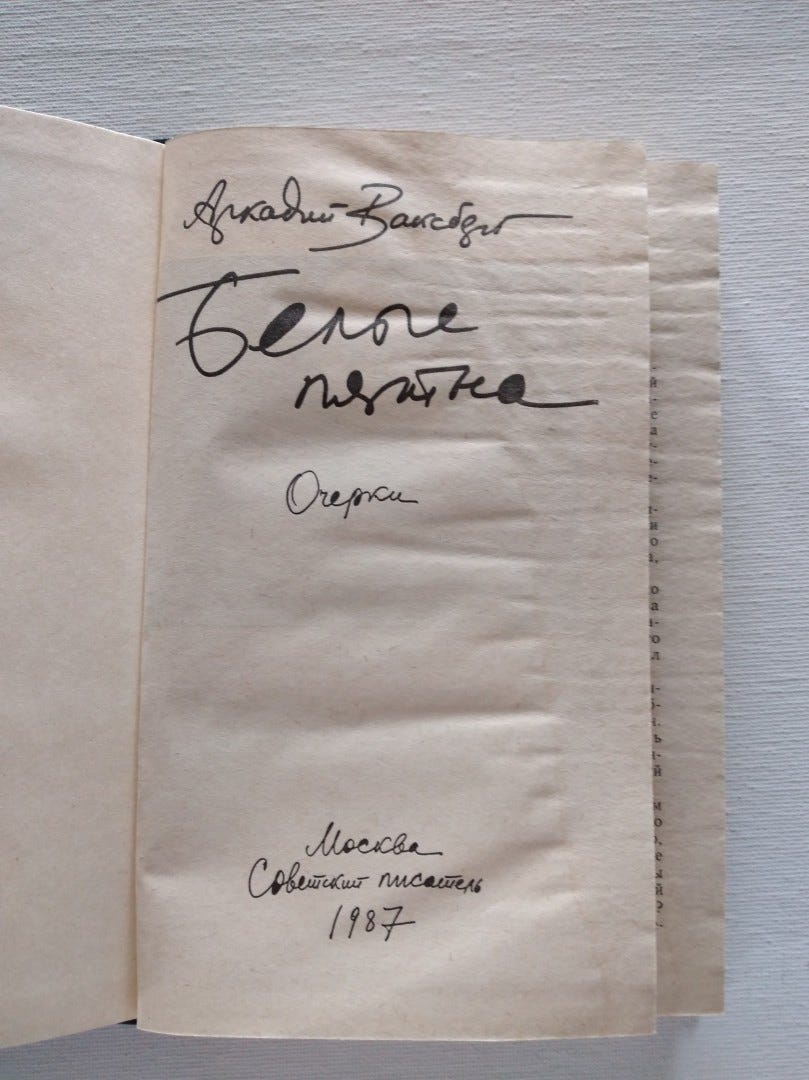 Аркадий Ваксберг
Белые
пятна
Очерки
Москва
Советский писатель
1987